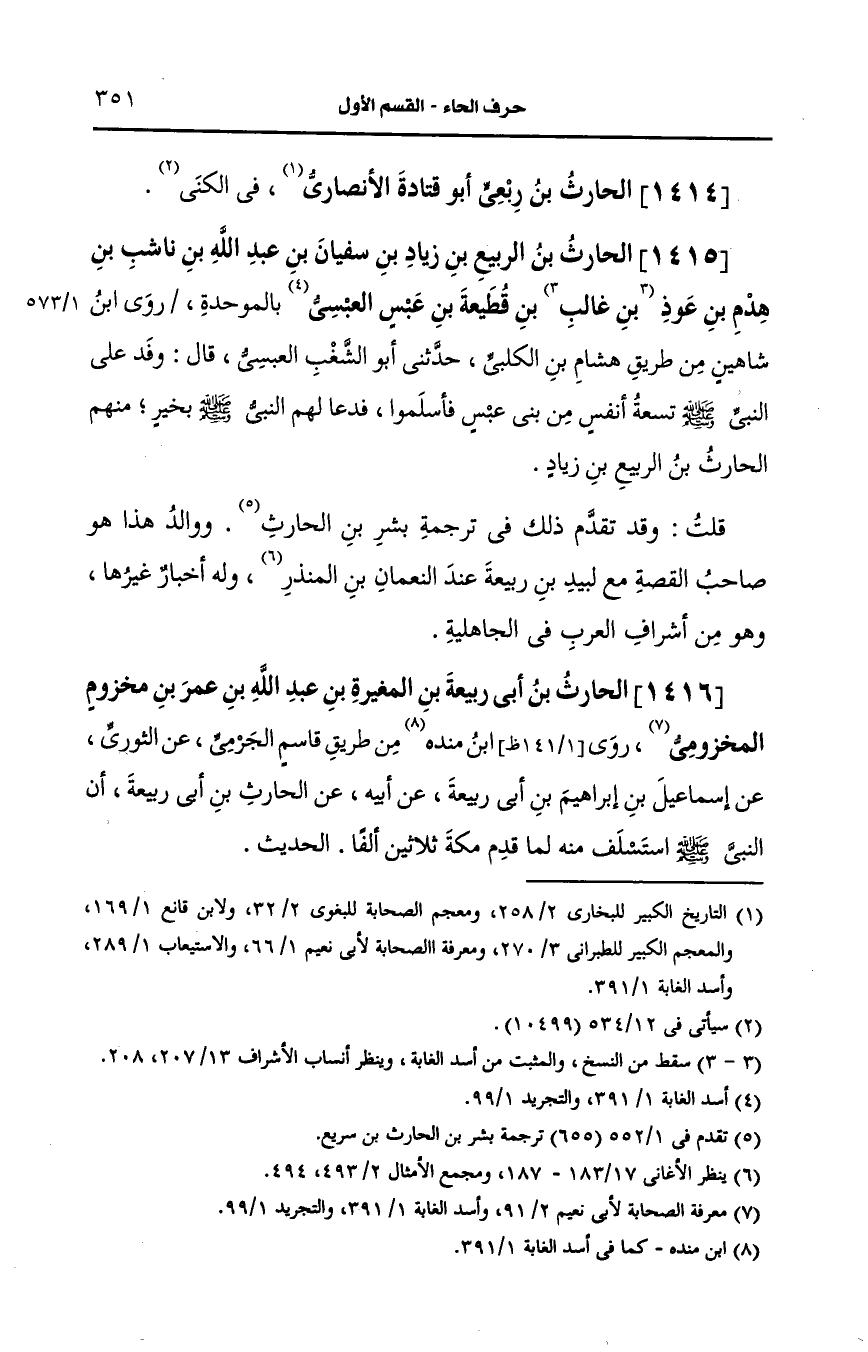 حرف الحاء - القسم الأول ٣٥١
[١٤١٤] الحارثُ بنُ رِبْعِىٍّ أبو قتادةَ الأنصارىُّ(١) ، فى الكنَى(٢) .
[١٤١٥] الحارثُ بنُ الربيعِ بنِ زيادِ بنِ سفيانَ بنِ عبدِ اللَّهِ بنِ ناشبِ بنِ
هِدْمِ بنِ عَوذِ (٣بنِ غالبِ٣) بنِ قُطَيعةَ بنِ عَبْسٍ العبْسِىُّ(٤) بالموحدةِ ، / روَى ابنُ ٥٧٣/١
شاهينٍ مِن طريقِ هشامِ بنِ الكلبىِّ ، حدَّثنى أبو الشَّغْبِ العبسِىُّ ، قال : وفَد على
النبىِّ ﷺ تسعةُ أنفسٍ مِن بنى عبْسٍ فأسلَموا ، فدعا لهم النبىُّ ﷺ بخيرٍ ؛ منهم
الحارثُ بنُ الربيعِ بنِ زيادٍ .
قلتُ : وقد تقدَّم ذلك فى ترجمةِ بشرِ بنِ الحارثِ(٥) . ووالدُ هذا هو
صاحبُ القصةِ مع لبيدِ بنِ ربيعةَ عندَ النعمانِ بنِ المنذرِ(٦) ، وله أخبارٌ غيرُها ،
وهو مِن أشرافِ العربِ فى الجاهليةِ .
[١٤١٦] الحارثُ بنُ أبى ربيعةَ بنِ المغيرةِ بنِ عبدِ اللَّهِ بنِ عمرَ بنِ مخزومٍ
المخزومِىُّ(٧) ، روَى [١٤١/١ظ] ابنُ منده(٨) مِن طريقِ قاسمٍ الجَرْمِىِّ ، عن الثورىِّ ،
عن إسماعيلَ بنِ إبراهيمَ بنِ أبى ربيعةَ ، عن أبيه ، عن الحارثِ بنِ أبى ربيعةَ ، أن
النبىَّ ﷺ استَسْلَف منه لما قدِم مكةَ ثلاثين ألفًا . الحديث .
(١) التاريخ الكبير للبخارى ٢/ ٢٥٨، ومعجم الصحابة للبغوى ٢/ ٣٢، ولابن قانع ١/ ١٦٩،
والمعجم الكبير للطبرانى ٣/ ٢٧٠، ومعرفة االصحابة لأبى نعيم ١/ ٦٦، والاستيعاب ١/ ٢٨٩،
وأسد الغابة ١/ ٣٩١.
(٢) سيأتى فى ١٢/ ٥٣٤ (١٠٤٩٩) .
(٣ - ٣) سقط من النسخ ، والمثبت من أسد الغابة ، وينظر أنساب الأشراف ١٣/ ٢٠٧، ٢٠٨.
(٤) أسد الغابة ١/ ٣٩١، والتجريد ١/ ٩٩.
(٥) تقدم فى ١/ ٥٥٢ (٦٥٥) ترجمة بشر بن الحارث بن سريع.
(٦) ينظر الأغانى ١٧/ ١٨٣ - ١٨٧، ومجمع الأمثال ٢/ ٤٩٣، ٤٩٤.
(٧) معرفة الصحابة لأبى نعيم ٢/ ٩١، وأسد الغابة ١/ ٣٩١، والتجريد ١/ ٩٩.
(٨) ابن منده - كما فى أسد الغابة ١/ ٣٩١.